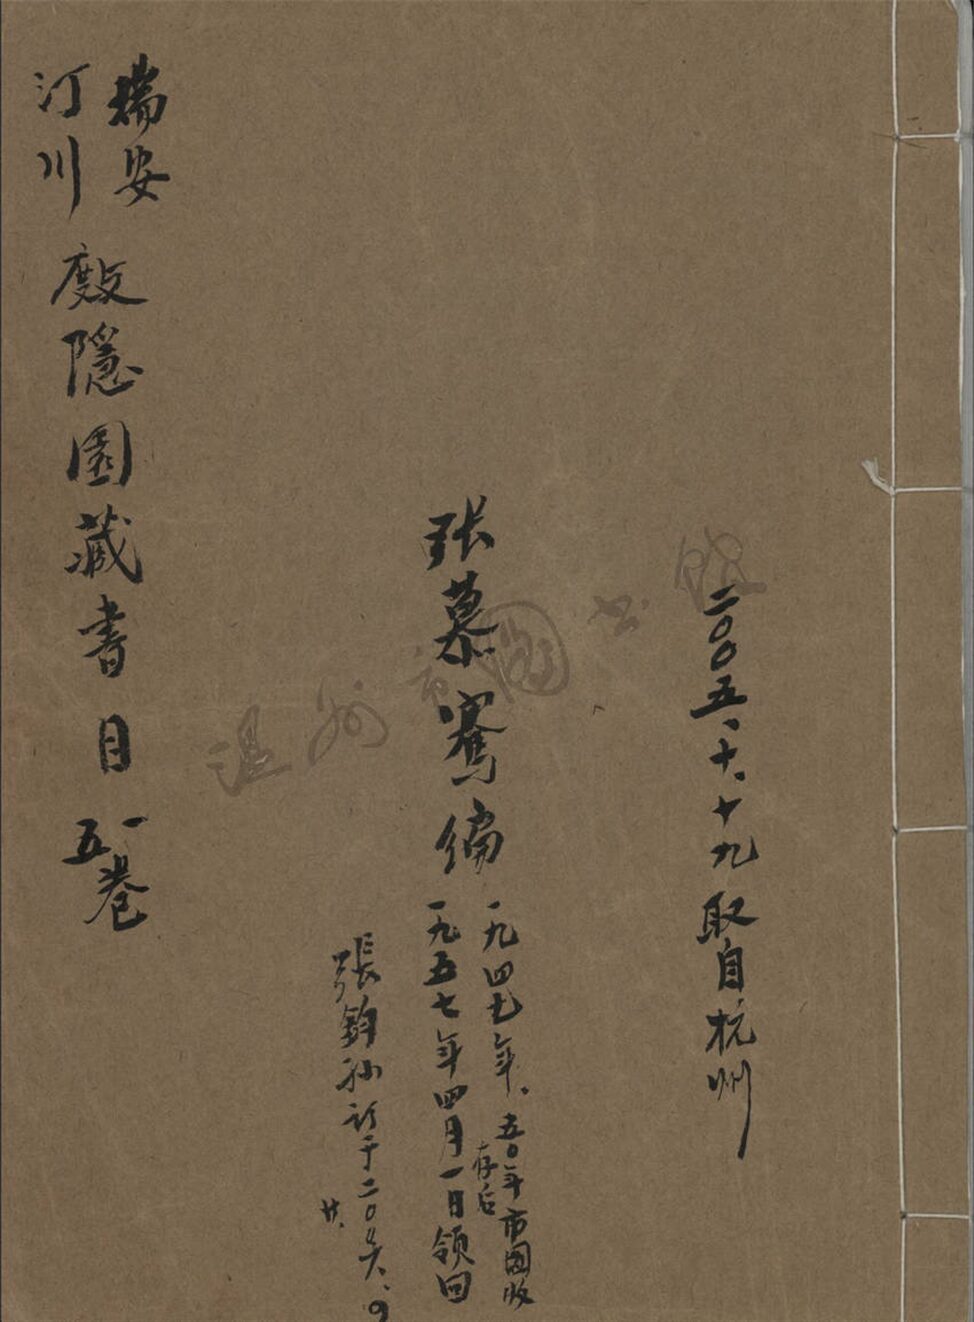 二〇〇五、十、十九取自杭州
张慕骞编
一九四七年、五〇年市図收
存后
一九五七年四月一日领回
張鈞孙訂于二〇〇六、
廿、
瑞安
汀川
隱園藏書目
一
五
卷
温州市圖书館